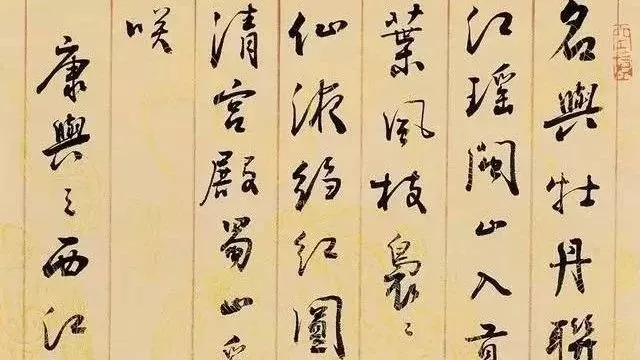 名與牡丹聯
江瑤閩山入
葉風枝裊裊
仙液絳紅圓
清宮殿蜀山
咲
康與之西江